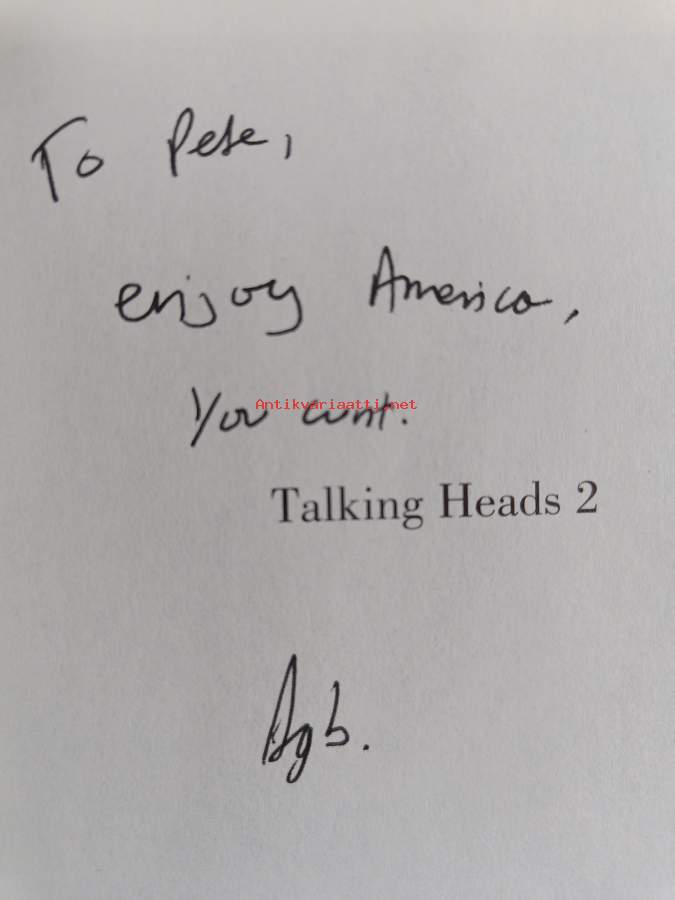 To Pete,
enjoy America,
Antikvariaatti.net
You cunt.
Talking Heads 2
Agb.